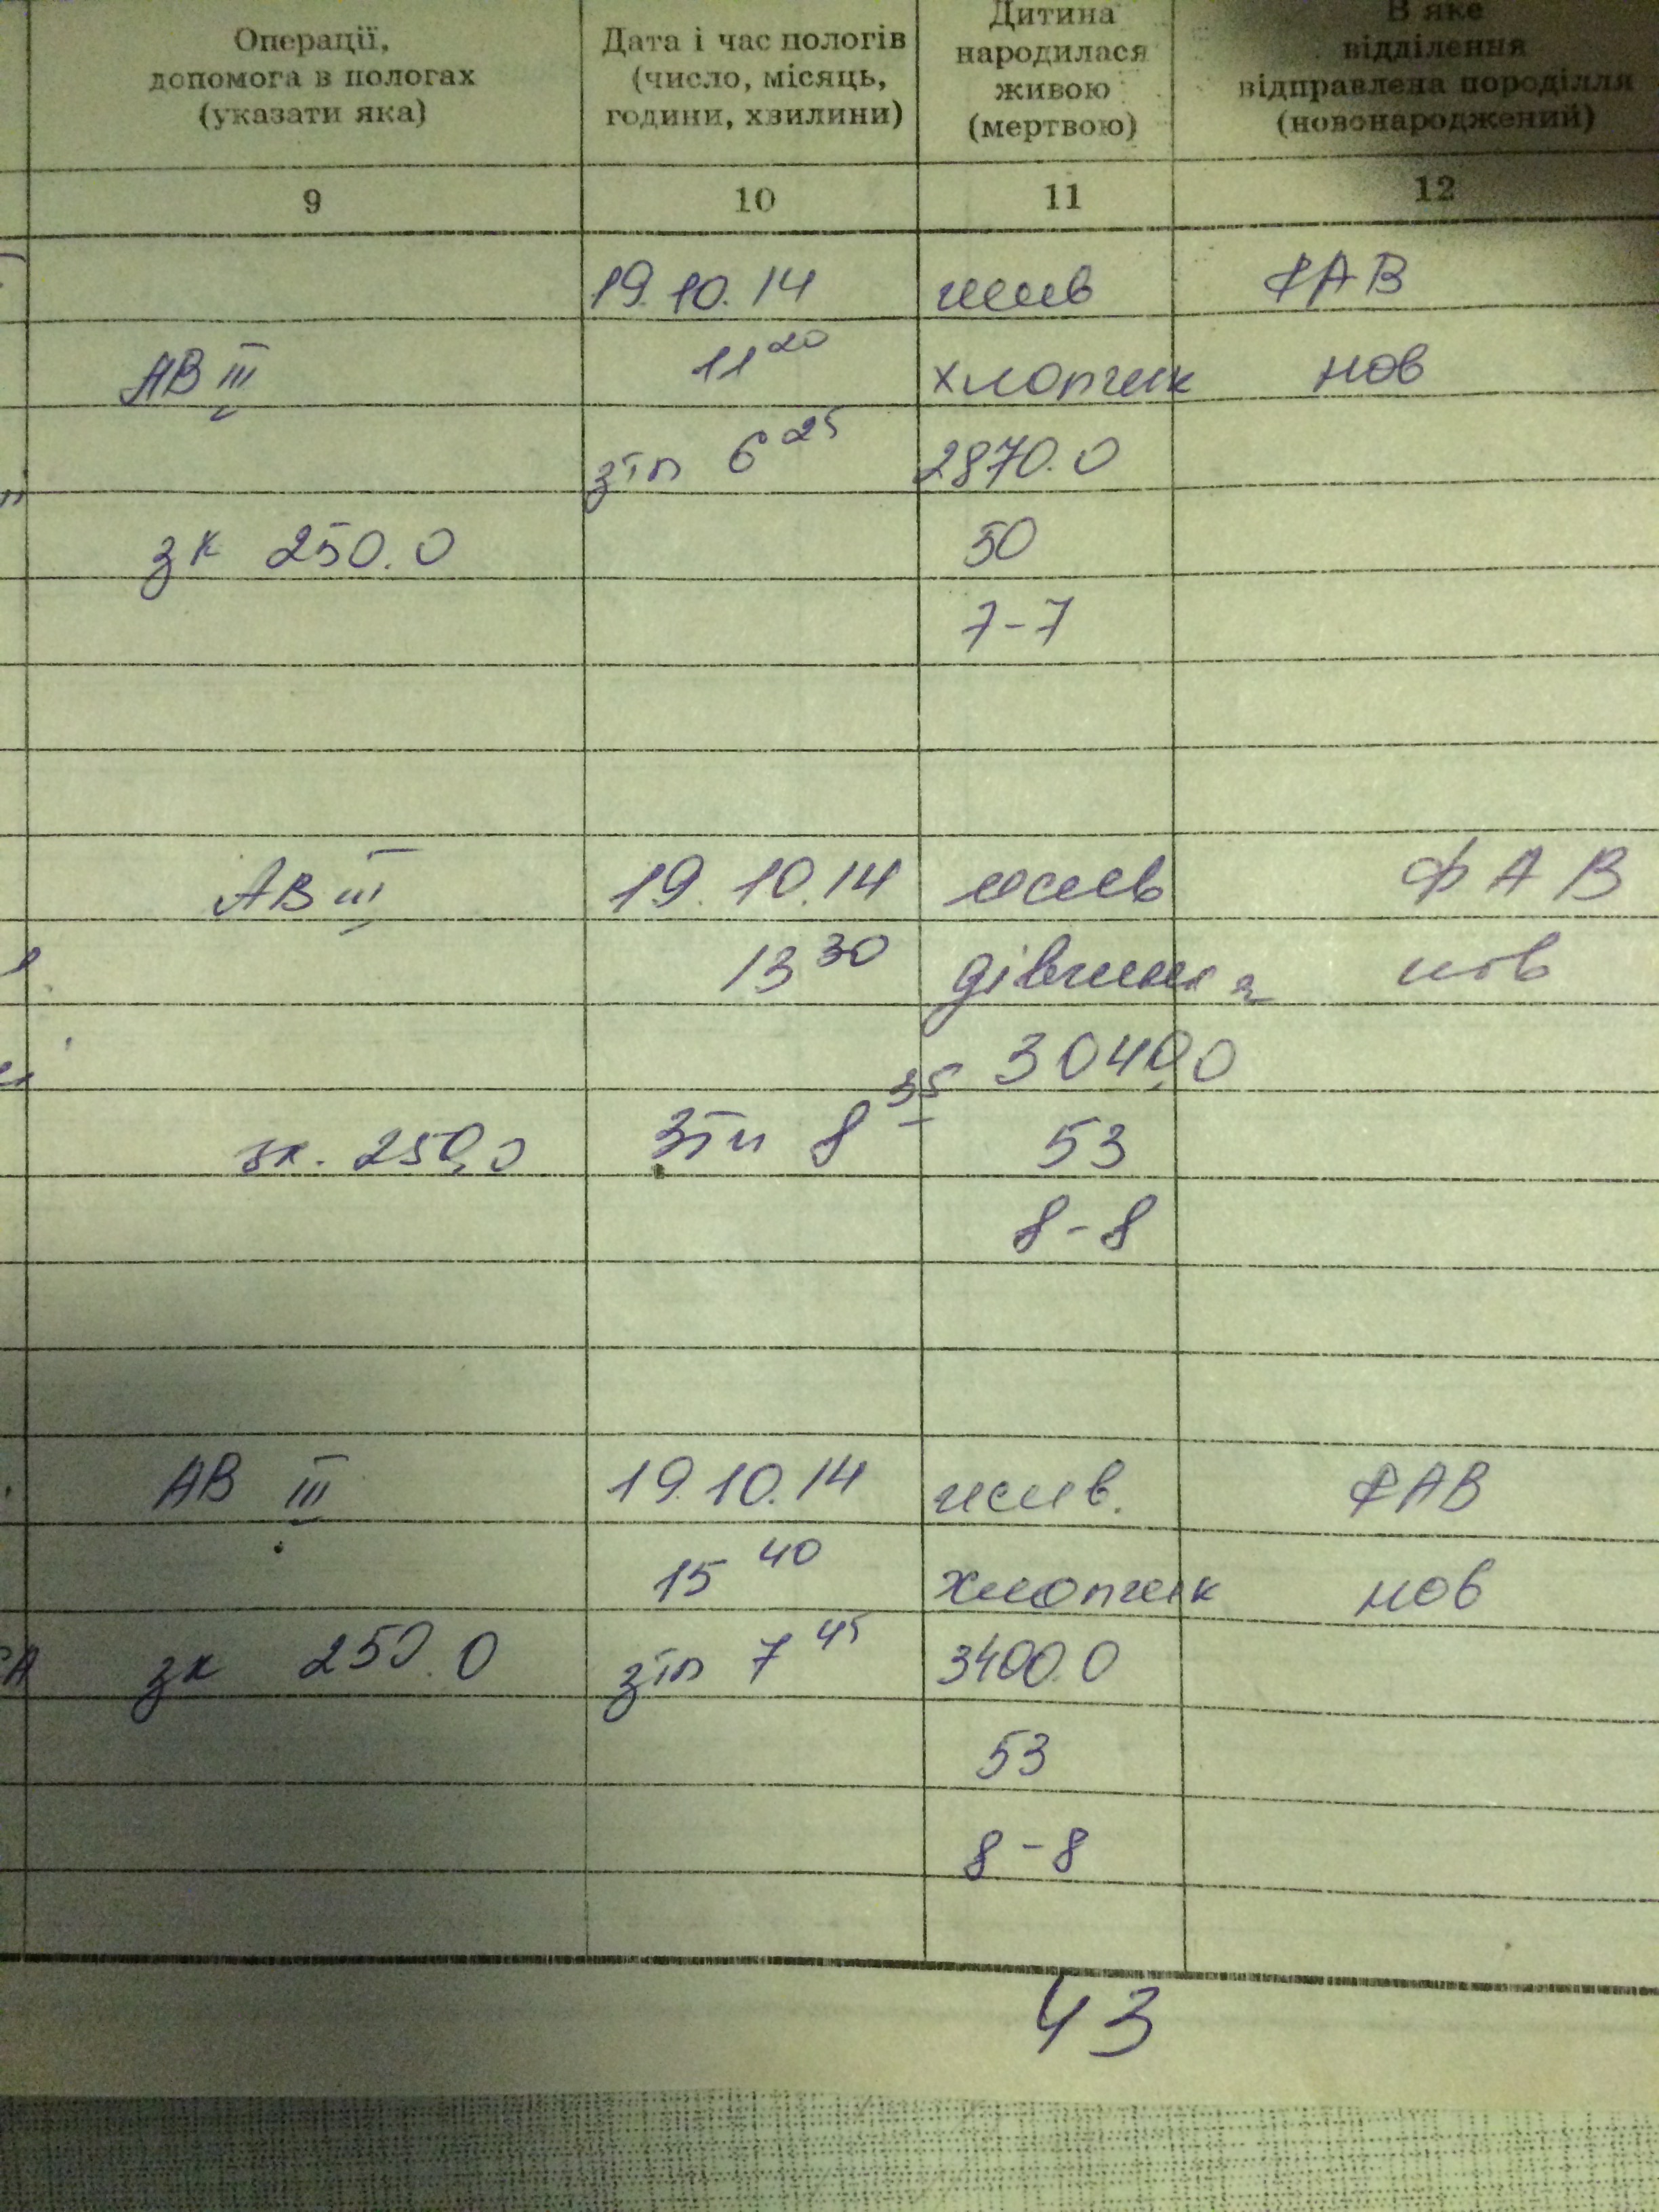 Операції,
допомога в пологах
(указати яка)
Дата і час пологів
(число, місяць,
години, хвилини)
Дитина
народилася
живою
(мертвою)
В яке
відділення
відправлена породілля
(новонароджений)
9 10 11 12
19.10.14 жив ФАВ
АВ III 11 20 хлопчик нов
зтп 6 25 2870.0
зк 250.0 50
7-7
АВ III 19.10.14 жив ФАВ
13 30 дівчинка нов
3040,0
зк. 250,0 зтп 8 35 53
8-8
АВ III 19.10.14 жив. ФАВ
15 40 хлопчик нов
зк 250.0 зтп 7 45 3400.0
53
8-8
43